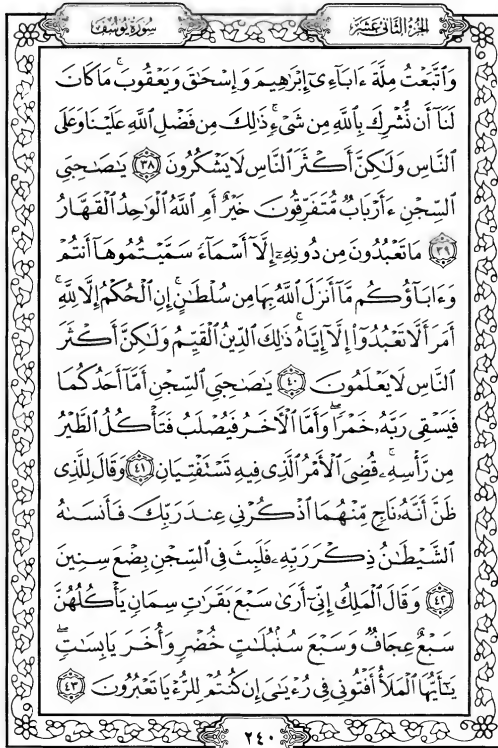 سورة يوسف
الجزء الثاني عشر
وَاتَّبَعْتُ مِلَّةَ ءَابَآءِىٓ إِبْرَٰهِيمَ وَإِسْحَٰقَ وَيَعْقُوبَ ۚ مَا كَانَ
لَنَآ أَن نُّشْرِكَ بِٱللَّهِ مِن شَىْءٍ ۚ ذَٰلِكَ مِن فَضْلِ ٱللَّهِ عَلَيْنَا وَعَلَى
ٱلنَّاسِ وَلَٰكِنَّ أَكْثَرَ ٱلنَّاسِ لَا يَشْكُرُونَ ٣٨ يَٰصَٰحِبَىِ
ٱلسِّجْنِ ءَأَرْبَابٌ مُّتَفَرِّقُونَ خَيْرٌ أَمِ ٱللَّهُ ٱلْوَٰحِدُ ٱلْقَهَّارُ
٣٩ مَا تَعْبُدُونَ مِن دُونِهِۦٓ إِلَّآ أَسْمَآءً سَمَّيْتُمُوهَآ أَنتُمْ
وَءَابَآؤُكُم مَّآ أَنزَلَ ٱللَّهُ بِهَا مِن سُلْطَٰنٍ ۚ إِنِ ٱلْحُكْمُ إِلَّا لِلَّهِ ۚ
أَمَرَ أَلَّا تَعْبُدُوٓا۟ إِلَّآ إِيَّاهُ ۚ ذَٰلِكَ ٱلدِّينُ ٱلْقَيِّمُ وَلَٰكِنَّ أَكْثَرَ
ٱلنَّاسِ لَا يَعْلَمُونَ ٤٠ يَٰصَٰحِبَىِ ٱلسِّجْنِ أَمَّآ أَحَدُكُمَا
فَيَسْقِى رَبَّهُۥ خَمْرًا ۖ وَأَمَّا ٱلْءَاخَرُ فَيُصْلَبُ فَتَأْكُلُ ٱلطَّيْرُ
مِن رَّأْسِهِۦ ۚ قُضِىَ ٱلْأَمْرُ ٱلَّذِى فِيهِ تَسْتَفْتِيَانِ ٤١ وَقَالَ لِلَّذِى
ظَنَّ أَنَّهُۥ نَاجٍ مِّنْهُمَا ٱذْكُرْنِى عِندَ رَبِّكَ فَأَنسَىٰهُ
ٱلشَّيْطَٰنُ ذِكْرَ رَبِّهِۦ فَلَبِثَ فِى ٱلسِّجْنِ بِضْعَ سِنِينَ
٤٢ وَقَالَ ٱلْمَلِكُ إِنِّىٓ أَرَىٰ سَبْعَ بَقَرَٰتٍ سِمَانٍ يَأْكُلُهُنَّ
سَبْعٌ عِجَافٌ وَسَبْعَ سُنۢبُلَٰتٍ خُضْرٍ وَأُخَرَ يَابِسَٰتٍ ۖ
يَٰٓأَيُّهَا ٱلْمَلَأُ أَفْتُونِى فِى رُءْيَٰىَ إِن كُنتُمْ لِلرُّءْيَا تَعْبُرُونَ ٤٣
٢٤٠